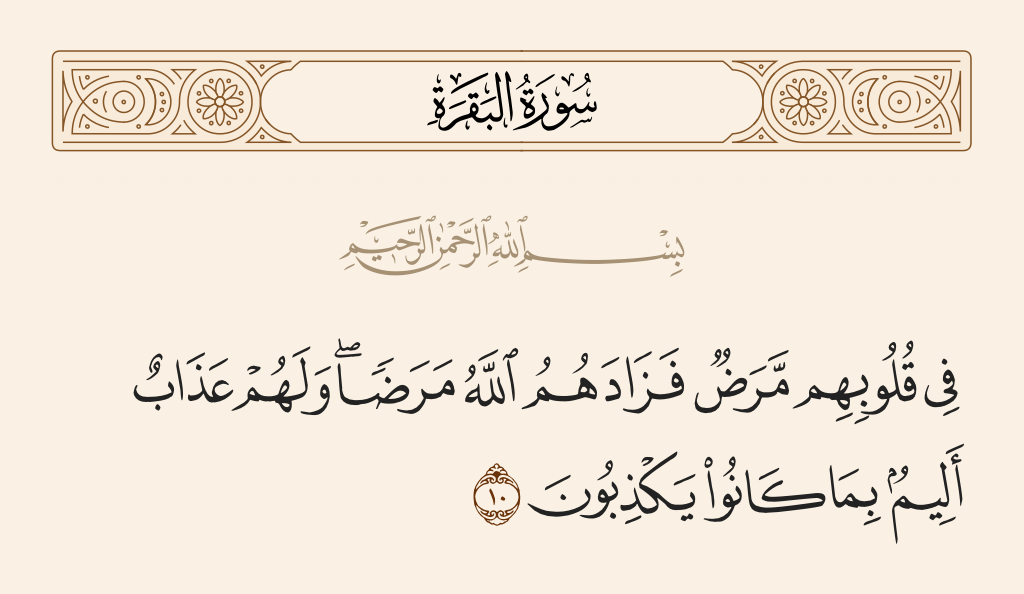 سُورَةُ البَقَرَةِ
بِسْمِ ٱللَّهِ ٱلرَّحْمَٰنِ ٱلرَّحِيمِ
فِى قُلُوبِهِم مَّرَضٌ فَزَادَهُمُ ٱللَّهُ مَرَضًا ۖ وَلَهُمْ عَذَابٌ
أَلِيمٌۢ بِمَا كَانُوا۟ يَكْذِبُونَ ١٠